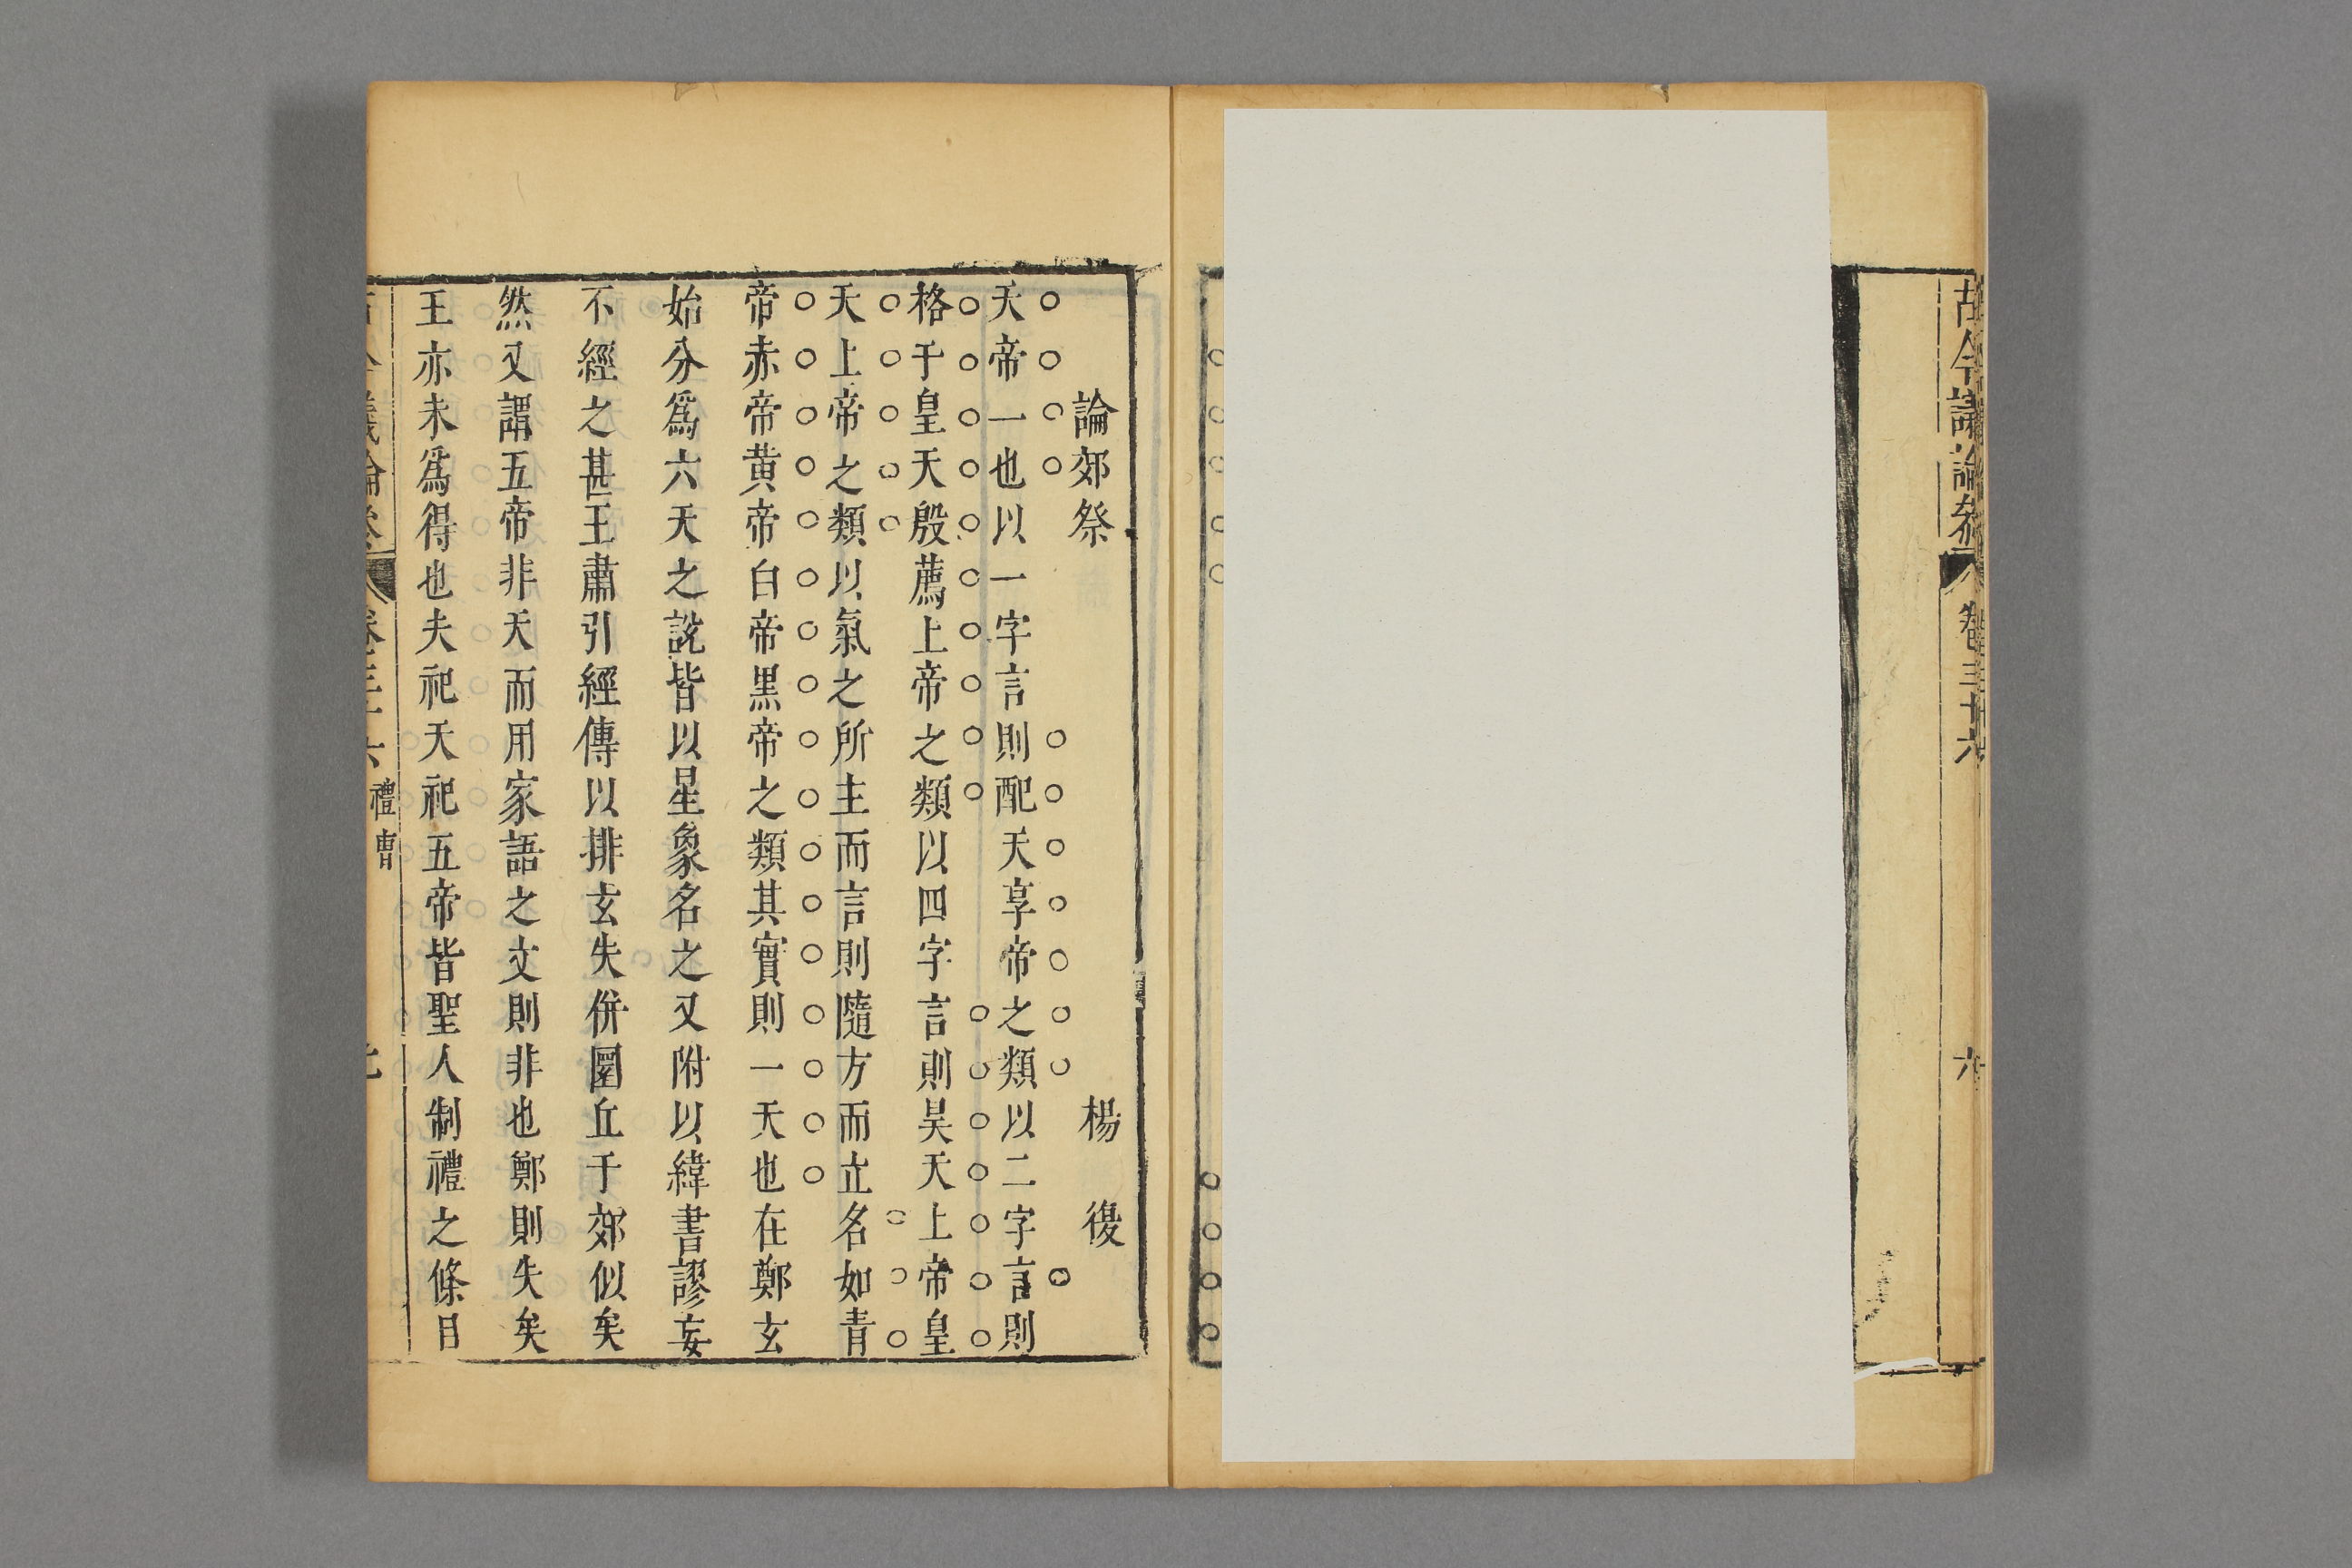 古今議論參
卷三十六
六
論郊祭 楊復
天帝一也以一字言則配天享帝之類以二字言則
格于皇天殷薦上帝之類以四字言則昊天上帝皇
天上帝之類以氣之所主而言則隨方而立名如青
帝赤帝黃帝白帝黑帝之類其實則一天也在鄭玄
始分爲六天之說皆以星象名之又附以緯書謬妄
不經之甚王肅引經傳以排玄失併圜丘于郊似矣
然又謂五帝非天而用家語之文則非也鄭則失矣
王亦未爲得也夫祀天祀五帝皆聖人制禮之條目
禮曹